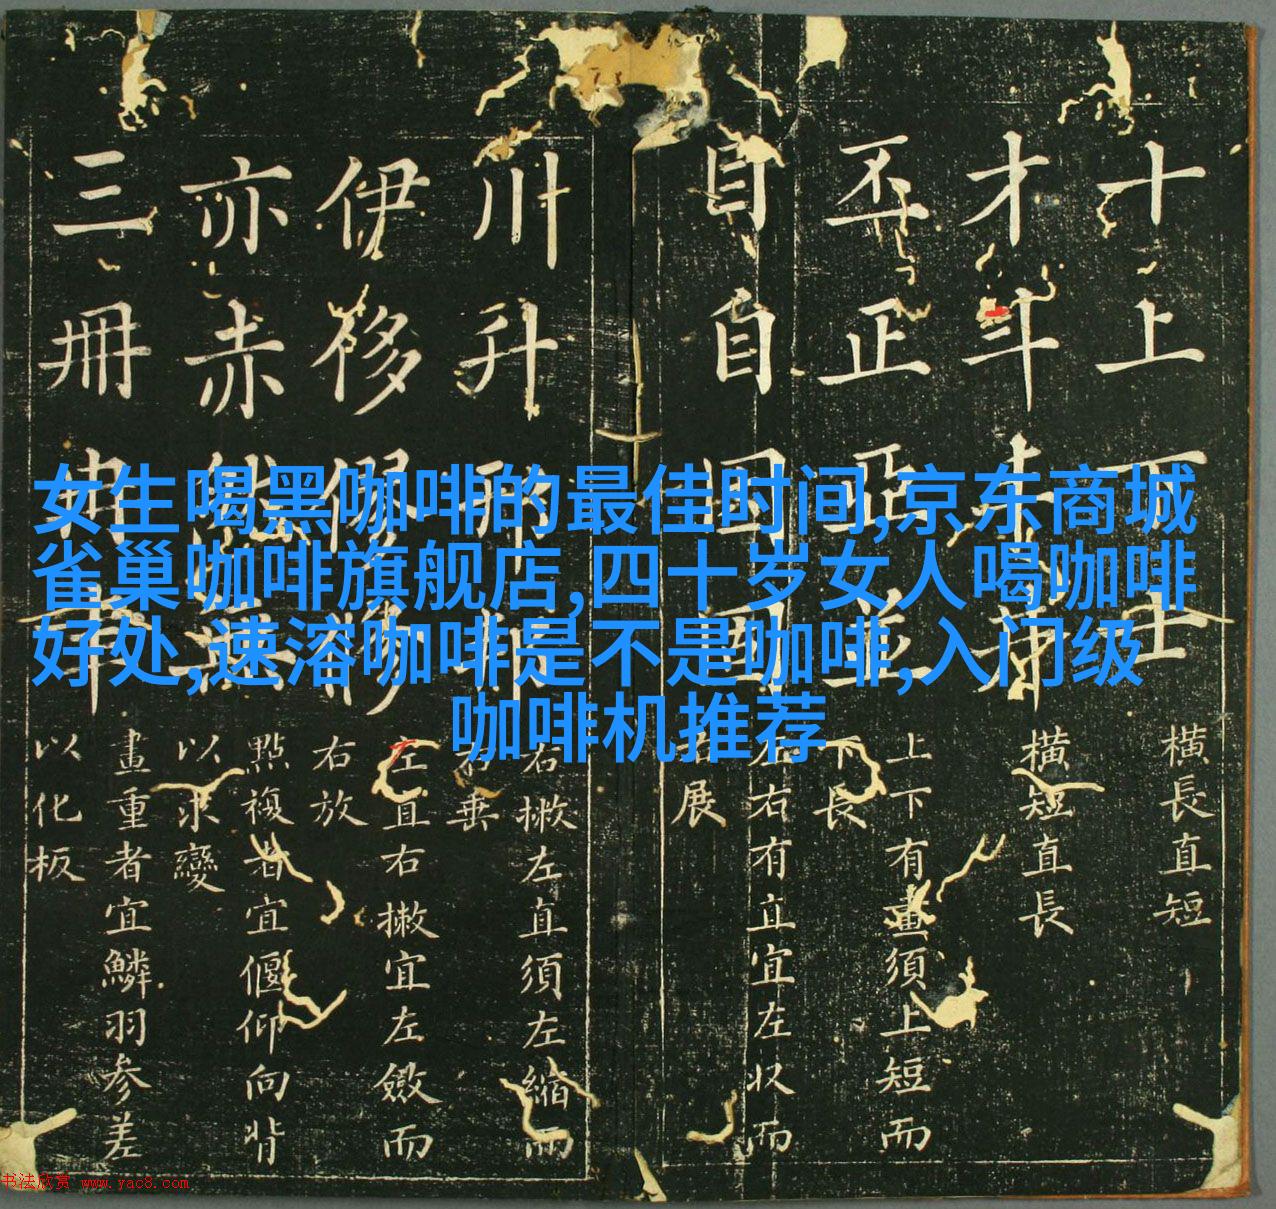 女生喝黑咖啡的最佳时间,京东商城
雀巢咖啡旗舰店,四十岁女人喝咖啡
好处,速溶咖啡是不是咖啡,入门级
咖啡机推荐
十上下士
橫長直短
才斗
橫短直長
丕正亞並
上下有畫須上短而
下長
目自因固
左右有直宜左收而
右展
川升
右撇左直須左縮而
右垂
伊侈
左直右撇宜左斂而
右放
亦赤
點複者宜偃仰向背
以求變
三冊
畫重者宜鱗羽参差
以化板
书法欣赏 www.yac8.com